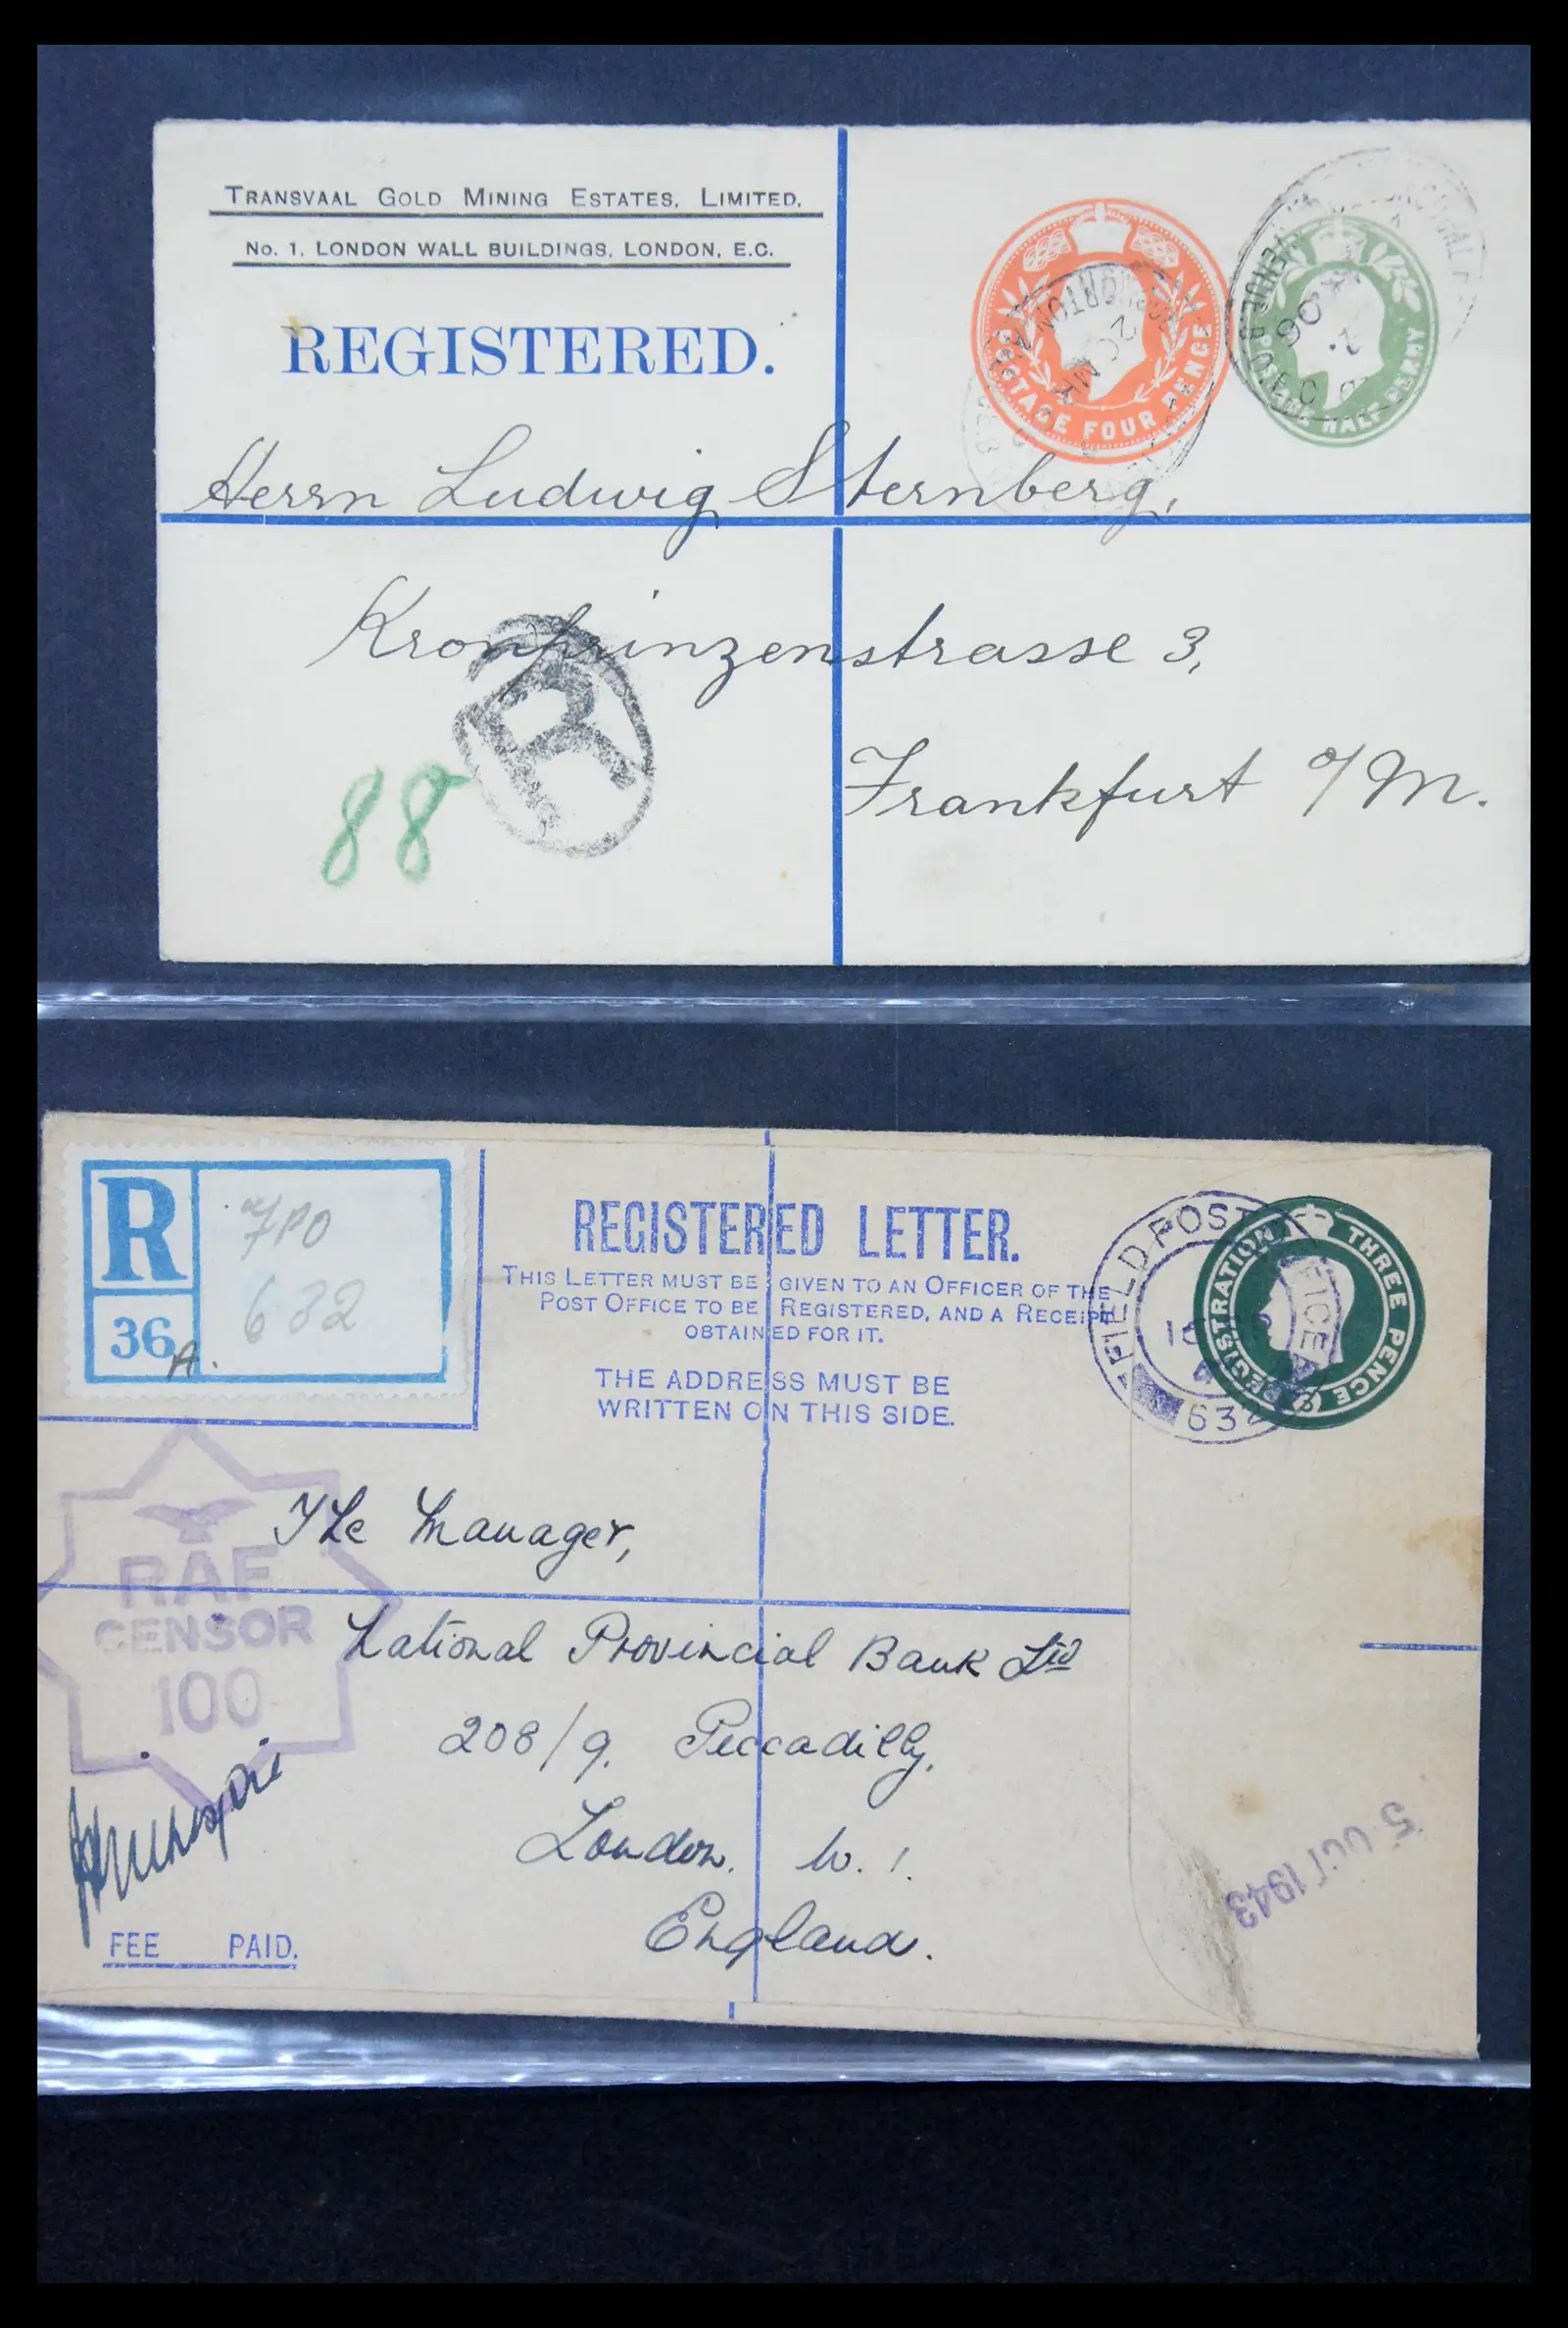 TRANSVAAL GOLD MINING ESTATES, LIMITED,
No. 1, LONDON WALL BUILDINGS, LONDON, E.C.
REGISTERED.
POSTAGE FOUR PENCE
POSTAGE HALF PENNY
20 MR
06
Herrn Ludwig Sternberg,
Kronprinzenstrasse 3,
R
88
Frankfurt a/M.
R
36A.
FPO
632
REGISTERED LETTER.
THIS LETTER MUST BE GIVEN TO AN OFFICER OF THE
POST OFFICE TO BE REGISTERED, AND A RECEIPT
OBTAINED FOR IT.
THE ADDRESS MUST BE
WRITTEN ON THIS SIDE.
FIELD POST OFFICE
632
REGISTRATION THREE PENCE
RAF
CENSOR
100
The Manager,
National Provincial Bank Ltd
208/9. Piccadilly,
London. W.1.
England.
5 OCT 1943
FEE PAID.